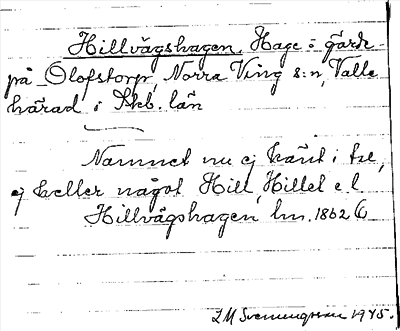 Hillvägshagen, Hage o gärde
på Olofstorp, Norra Ving s:n, Valle
härad i Skb. län
Namnet nu ej känt i tse,
ej heller något Hill, Hillel e.l.
Hillvägshagen lm. 1862
L M Svenungsson 1945.